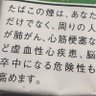 たばこの煙は、あなた
だけでなく、周りの人
が肺がん、心筋梗塞な
ど虚血性心疾患、脳
卒中になる危険性も
高めます。